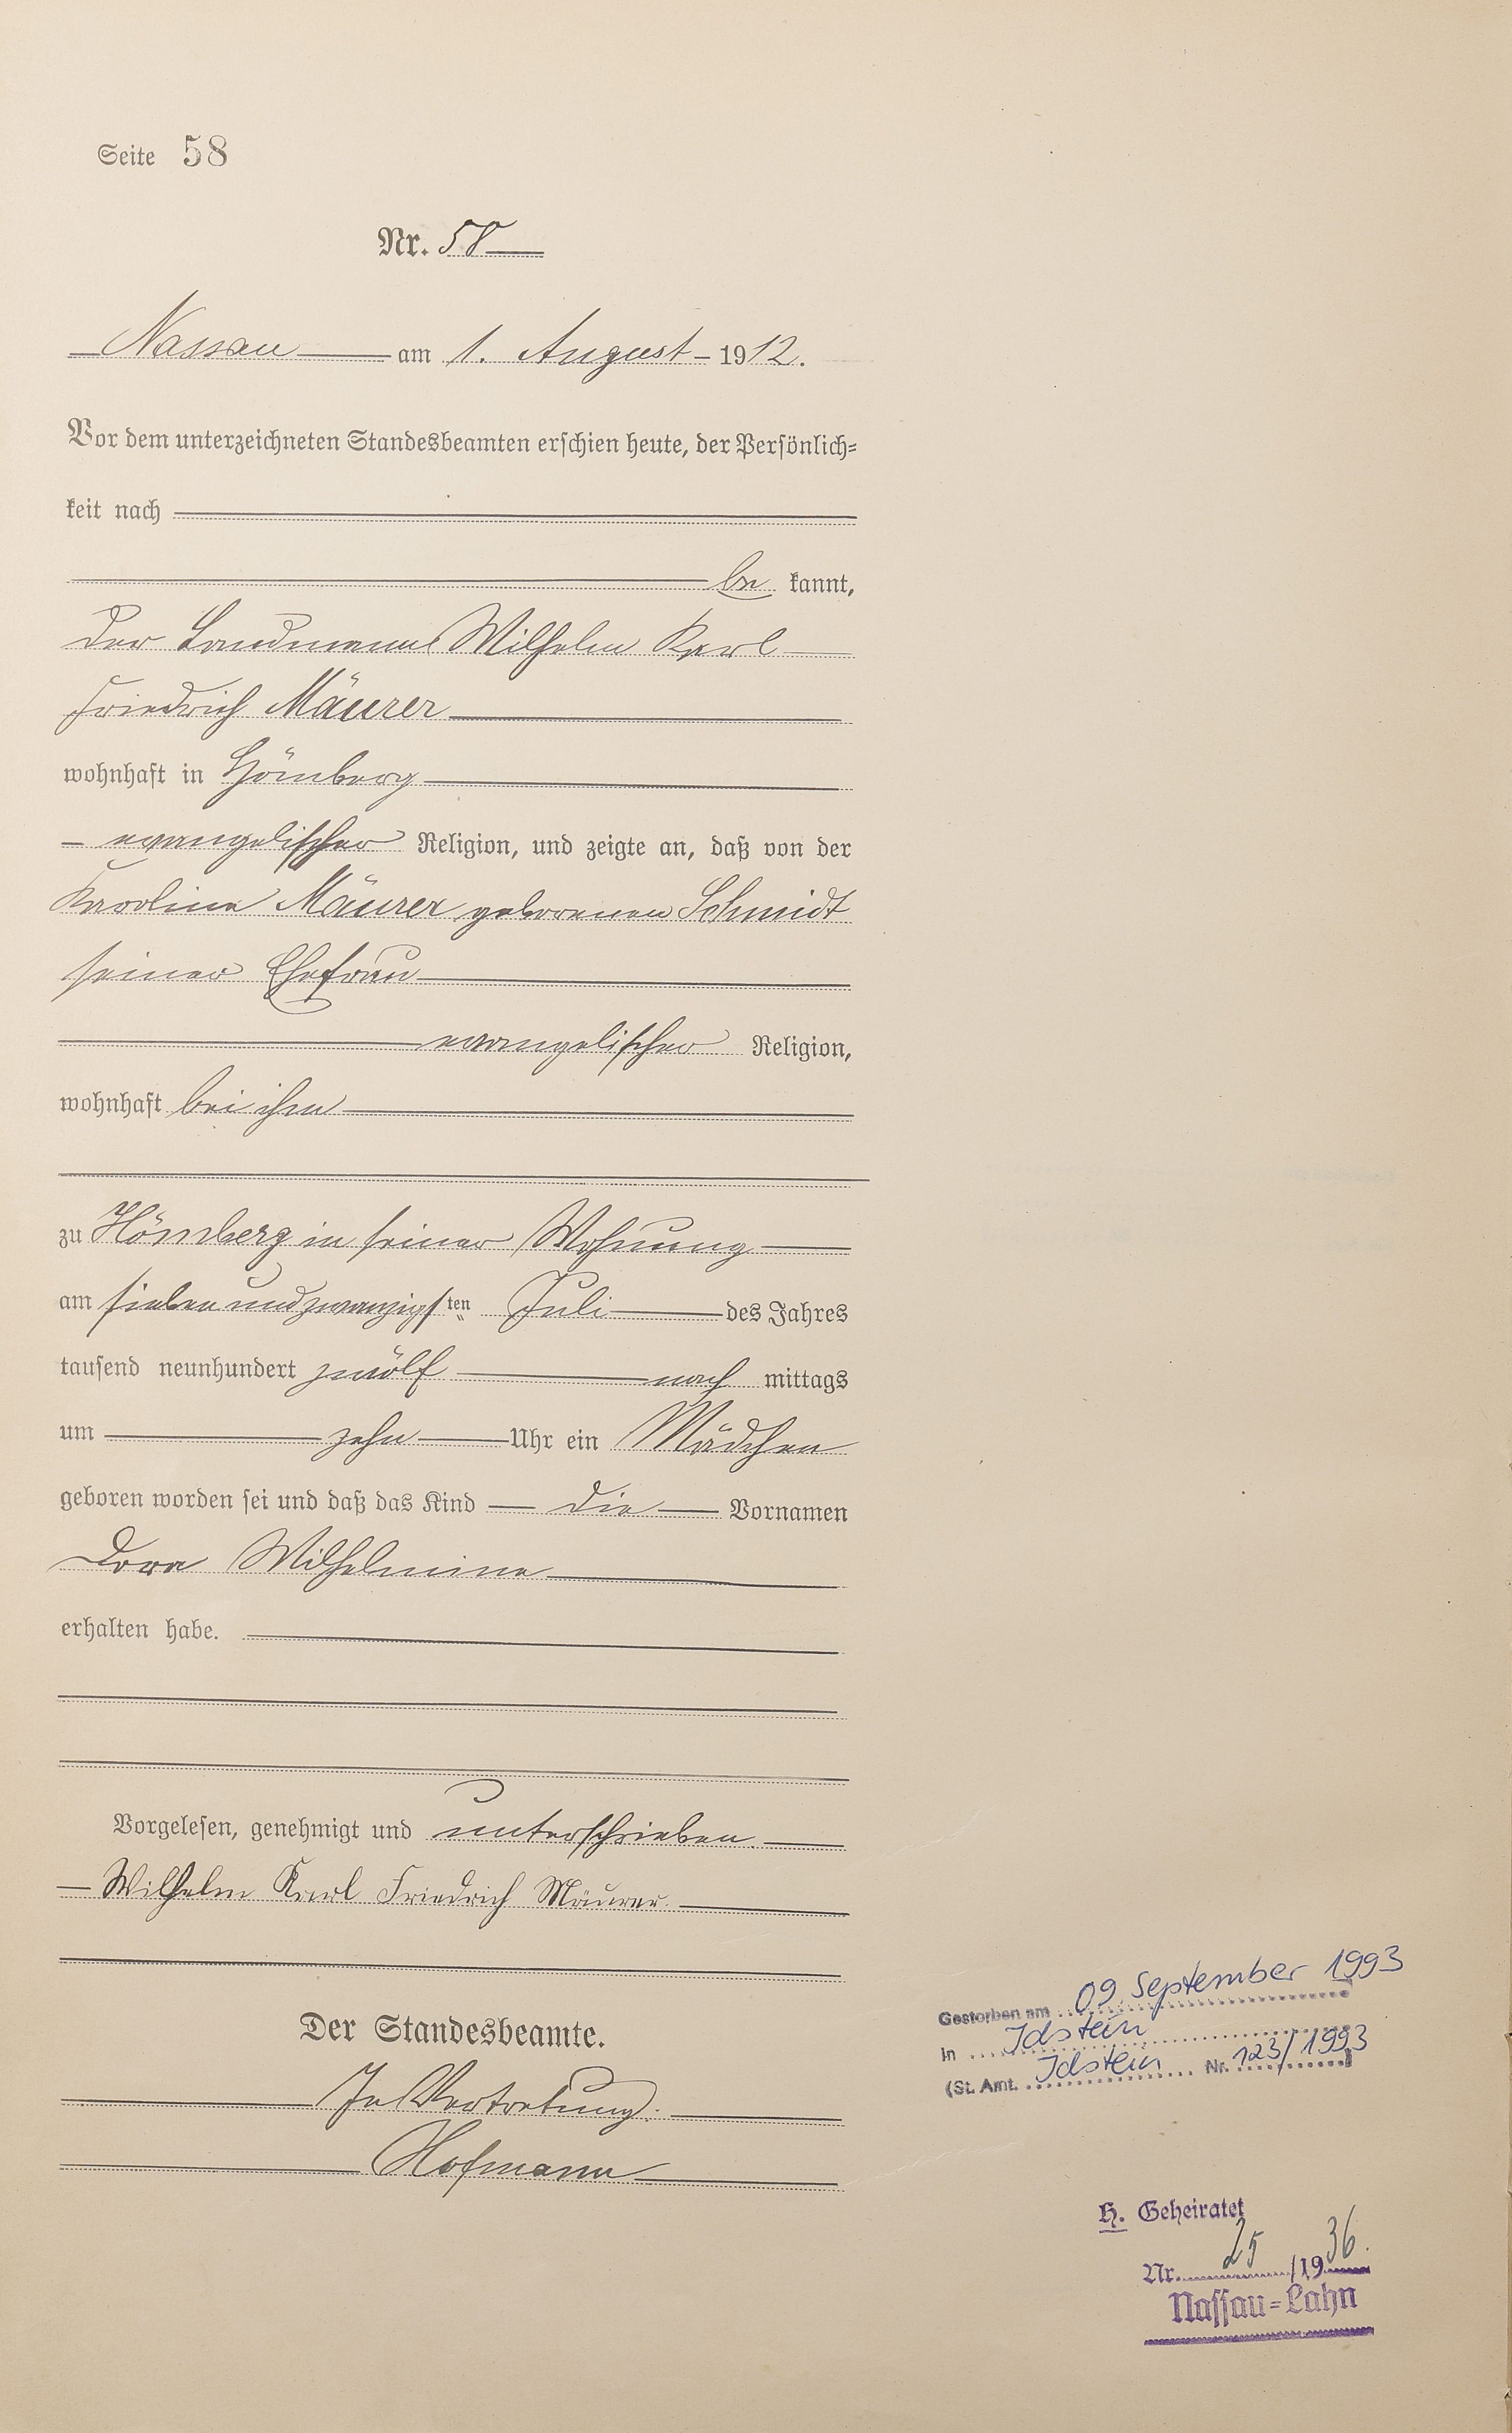 Seite 58
Nr. 58
Nassau am 1. August 1912.
Vor dem unterzeichneten Standesbeamten erschien heute, der Persönlich=
keit nach
be kannt,
der Landmann Wilhelm Karl
Friedrich Mäurer
wohnhaft in Hömberg
evangelischer Religion, und zeigte an, daß von der
Karoline Mäurer geborenen Schmidt
seiner Ehefrau
evangelischer Religion,
wohnhaft bei ihm
zu Hömberg in seiner Wohnung
am siebenundzwanzigsten Juli des Jahres
tausend neunhundert zwölf nach mittags
um zehn Uhr ein Mädchen
geboren worden sei und daß das Kind die Vornamen
Dora Wilhelmine
erhalten habe.
Vorgelesen, genehmigt und unterschrieben.
Wilhelm Karl Friedrich Mäurer.
Der Standesbeamte.
In Vertretung.
Hofmann
Gestorben am 09. September 1993
in Idstein
(St. Amt. Idstein Nr. 123/1993)
H. Geheiratet
Nr. 25 /1936.
Nassau=Lahn